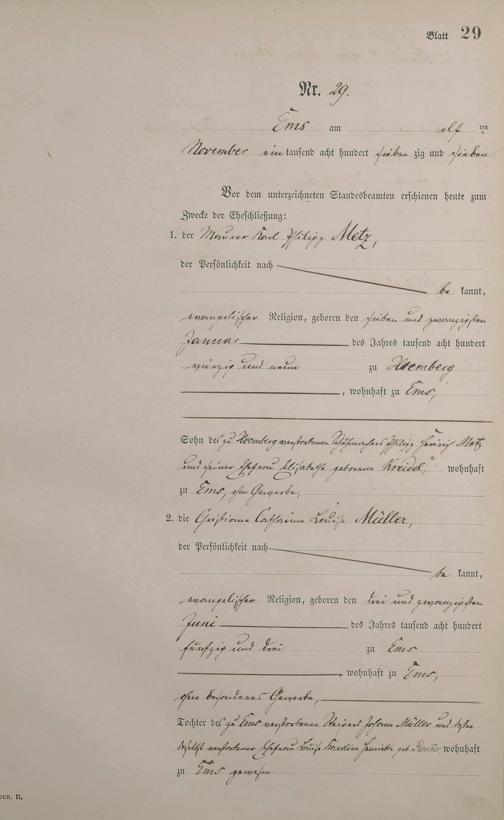 Blatt 29
Nr. 29.
Ems am elf ten
November ein tausend acht hundert sieben zig und sieben
Vor dem unterzeichneten Standesbeamten erschienen heute zum
Zwecke der Eheschließung:
1. der Maurer Karl Philipp Metz,
der Persönlichkeit nach
be kannt,
evangelischer Religion, geboren den sieben und zwanzigsten
Januar des Jahres tausend acht hundert
vierzig und neun zu Homberg
, wohnhaft zu Ems,
Sohn des zu Homberg verstorbenen Schuhmachers Philipp Heinrich Metz
und seiner Ehefrau Elisabetha geborene Kreidel, wohnhaft
zu Ems, ohne Gewerbe,
2. die Christiane Catharina Louise Müller,
der Persönlichkeit nach
be kannt,
evangelischer Religion, geboren den drei und zwanzigsten
Juni des Jahres tausend acht hundert
fünfzig und drei zu Ems
, wohnhaft zu Ems,
ohne besonderes Gewerbe,
Tochter des zu Ems verstorbenen Steigers Johann Müller und dessen
daselbst verstorbener Ehefrau Louise Henriette geb. wohnhaft
zu Ems gewesen.